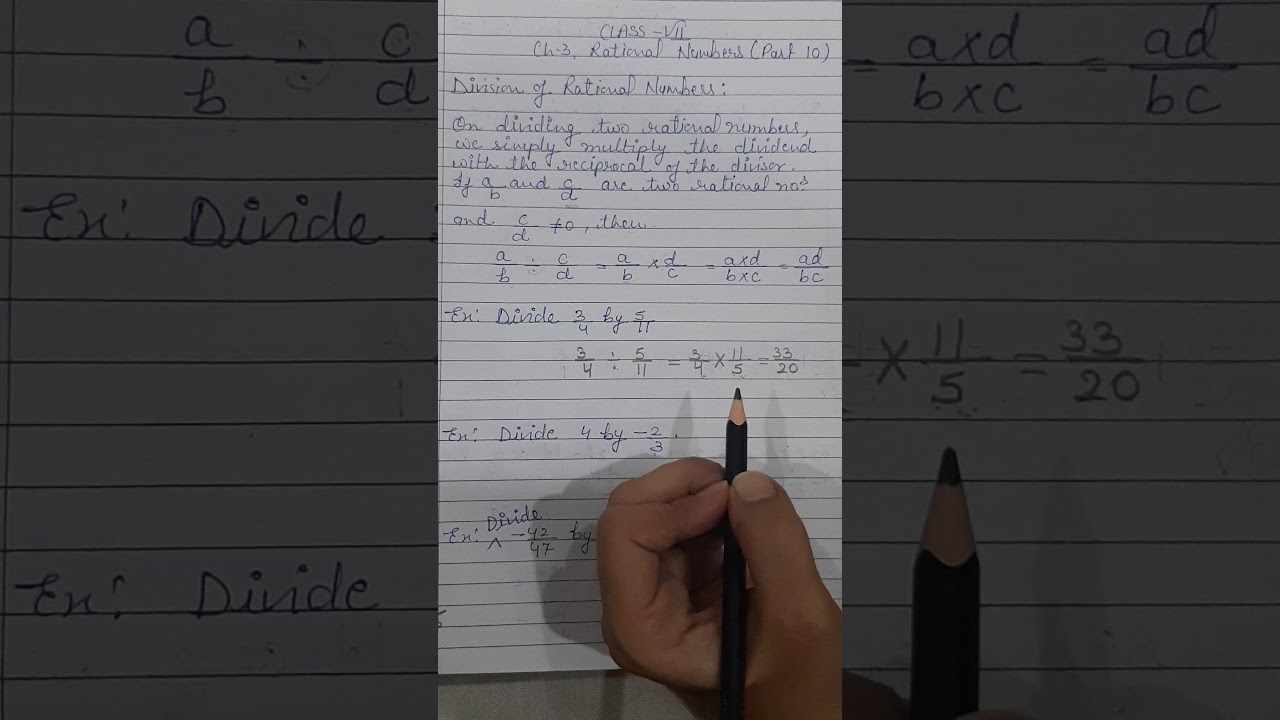 CLASS-VII
Ch-3, Rational Numbers (Part 10)
Division of Rational Numbers:
On dividing two rational numbers,
we simply multiply the dividend
with the reciprocal of the divisor.
If a/b and c/d are two rational nos
and c/d ≠0, then
a/b ÷ c/d = a/b × d/c = a×d/b×c = ad/bc
Ex: Divide 3/4 by 5/11
3/4 ÷ 5/11 = 3/4 × 11/5 = 33/20
Ex: Divide 4 by -2/3.
Ex: Divide -42/47 by